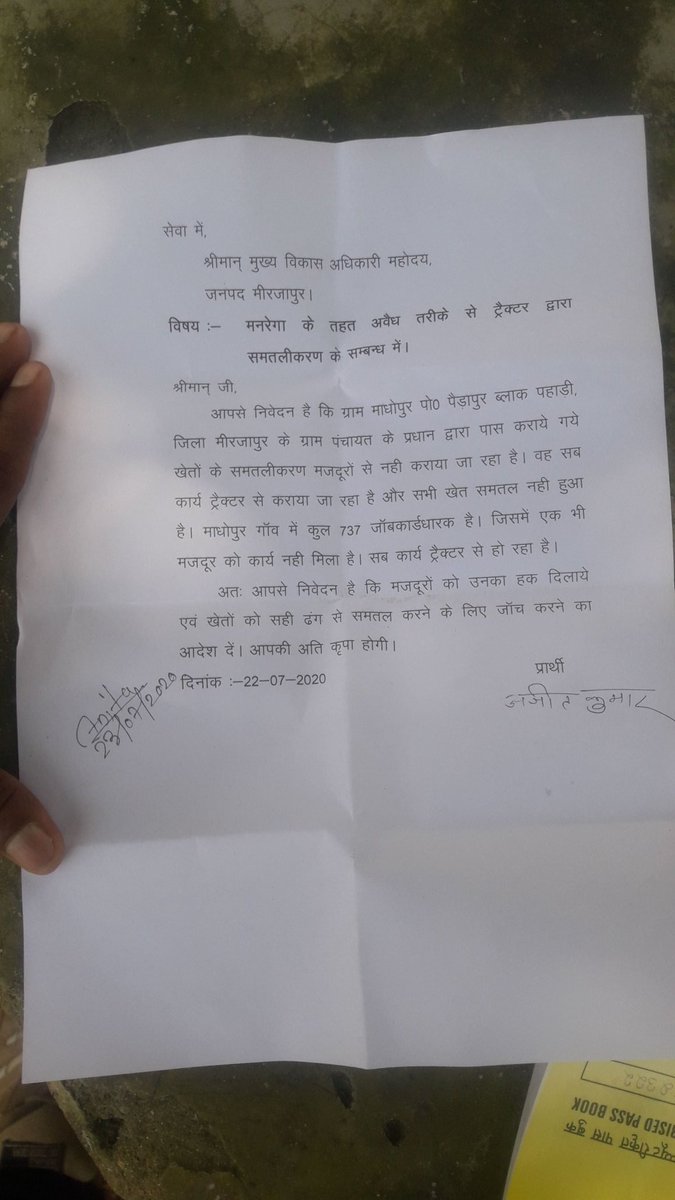 सेवा में,
श्रीमान् मुख्य विकास अधिकारी महोदय,
जनपद मीरजापुर।
विषय :– मनरेगा के तहत अवैध तरीके से ट्रैक्टर द्वारा
समतलीकरण के सम्बन्ध में।
श्रीमान् जी,
आपसे निवेदन है कि ग्राम माधोपुर पो0 पैड़ापुर ब्लाक पहाडी,
जिला मीरजापुर के ग्राम पंचायत के प्रधान द्वारा पास कराये गये
खेतों के समतलीकरण मजदूरों से नही कराया जा रहा है। वह सब
कार्य ट्रैक्टर से कराया जा रहा है और सभी खेत समतल नही हुआ
है। माधोपुर गॉव में कुल 737 जॉबकार्डधारक है। जिसमें एक भी
मजदूर को कार्य नही मिला है। सब कार्य ट्रैक्टर से हो रहा है।
अतः आपसे निवेदन है कि मजदूरों को उनका हक दिलाये
एवं खेतों को सही ढंग से समतल करने के लिए जॉच करने का
आदेश दें। आपकी अति कृपा होगी।
दिनांक :–22-07-2020
प्रार्थी
अजीत कुमार
23/07/2020
8302
RISED PASS BOOK
कृत पास बुक